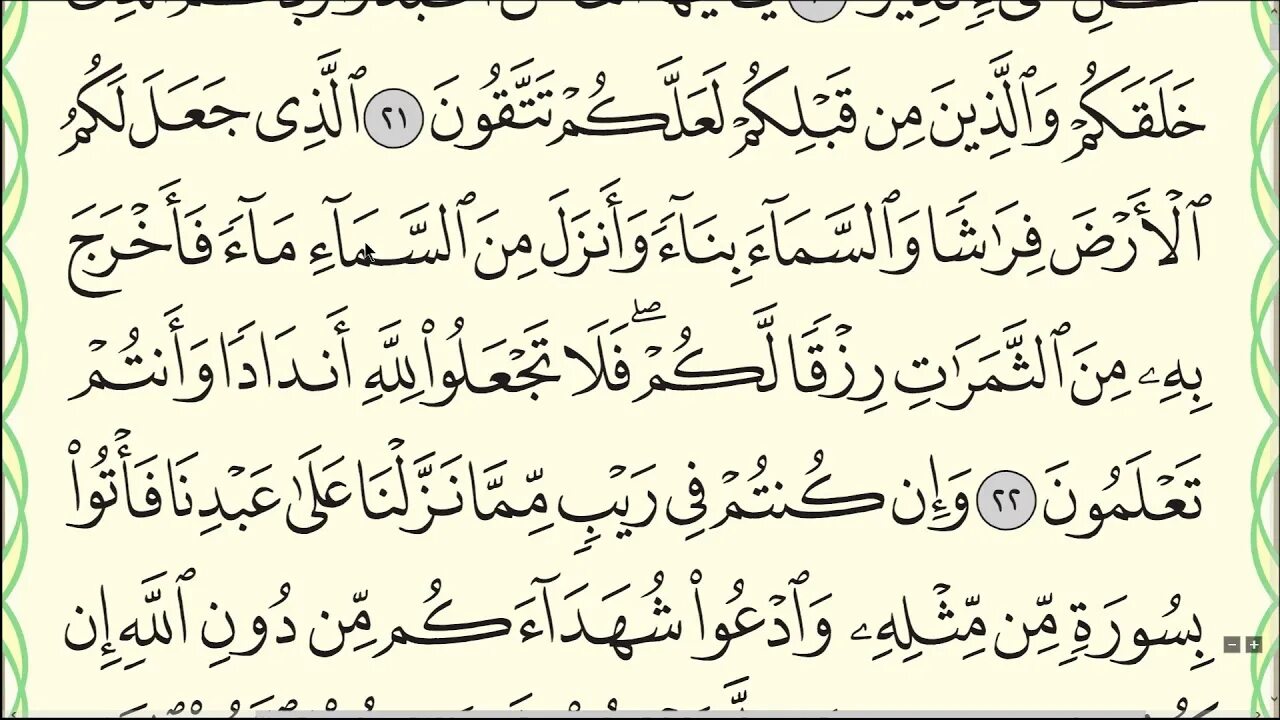 خَلَقَكُمْ وَٱلَّذِينَ مِن قَبْلِكُمْ لَعَلَّكُمْ تَتَّقُونَ ٢١ ٱلَّذِى جَعَلَ لَكُمُ
ٱلْأَرْضَ فِرَٰشًا وَٱلسَّمَآءَ بِنَآءً وَأَنزَلَ مِنَ ٱلسَّمَآءِ مَآءً فَأَخْرَجَ
بِهِۦ مِنَ ٱلثَّمَرَٰتِ رِزْقًا لَّكُمْ ۖ فَلَا تَجْعَلُوا۟ لِلَّهِ أَندَادًا وَأَنتُمْ
تَعْلَمُونَ ٢٢ وَإِن كُنتُمْ فِى رَيْبٍ مِّمَّا نَزَّلْنَا عَلَىٰ عَبْدِنَا فَأْتُوا۟
بِسُورَةٍ مِّن مِّثْلِهِۦ وَٱدْعُوا۟ شُهَدَآءَكُم مِّن دُونِ ٱللَّهِ إِن